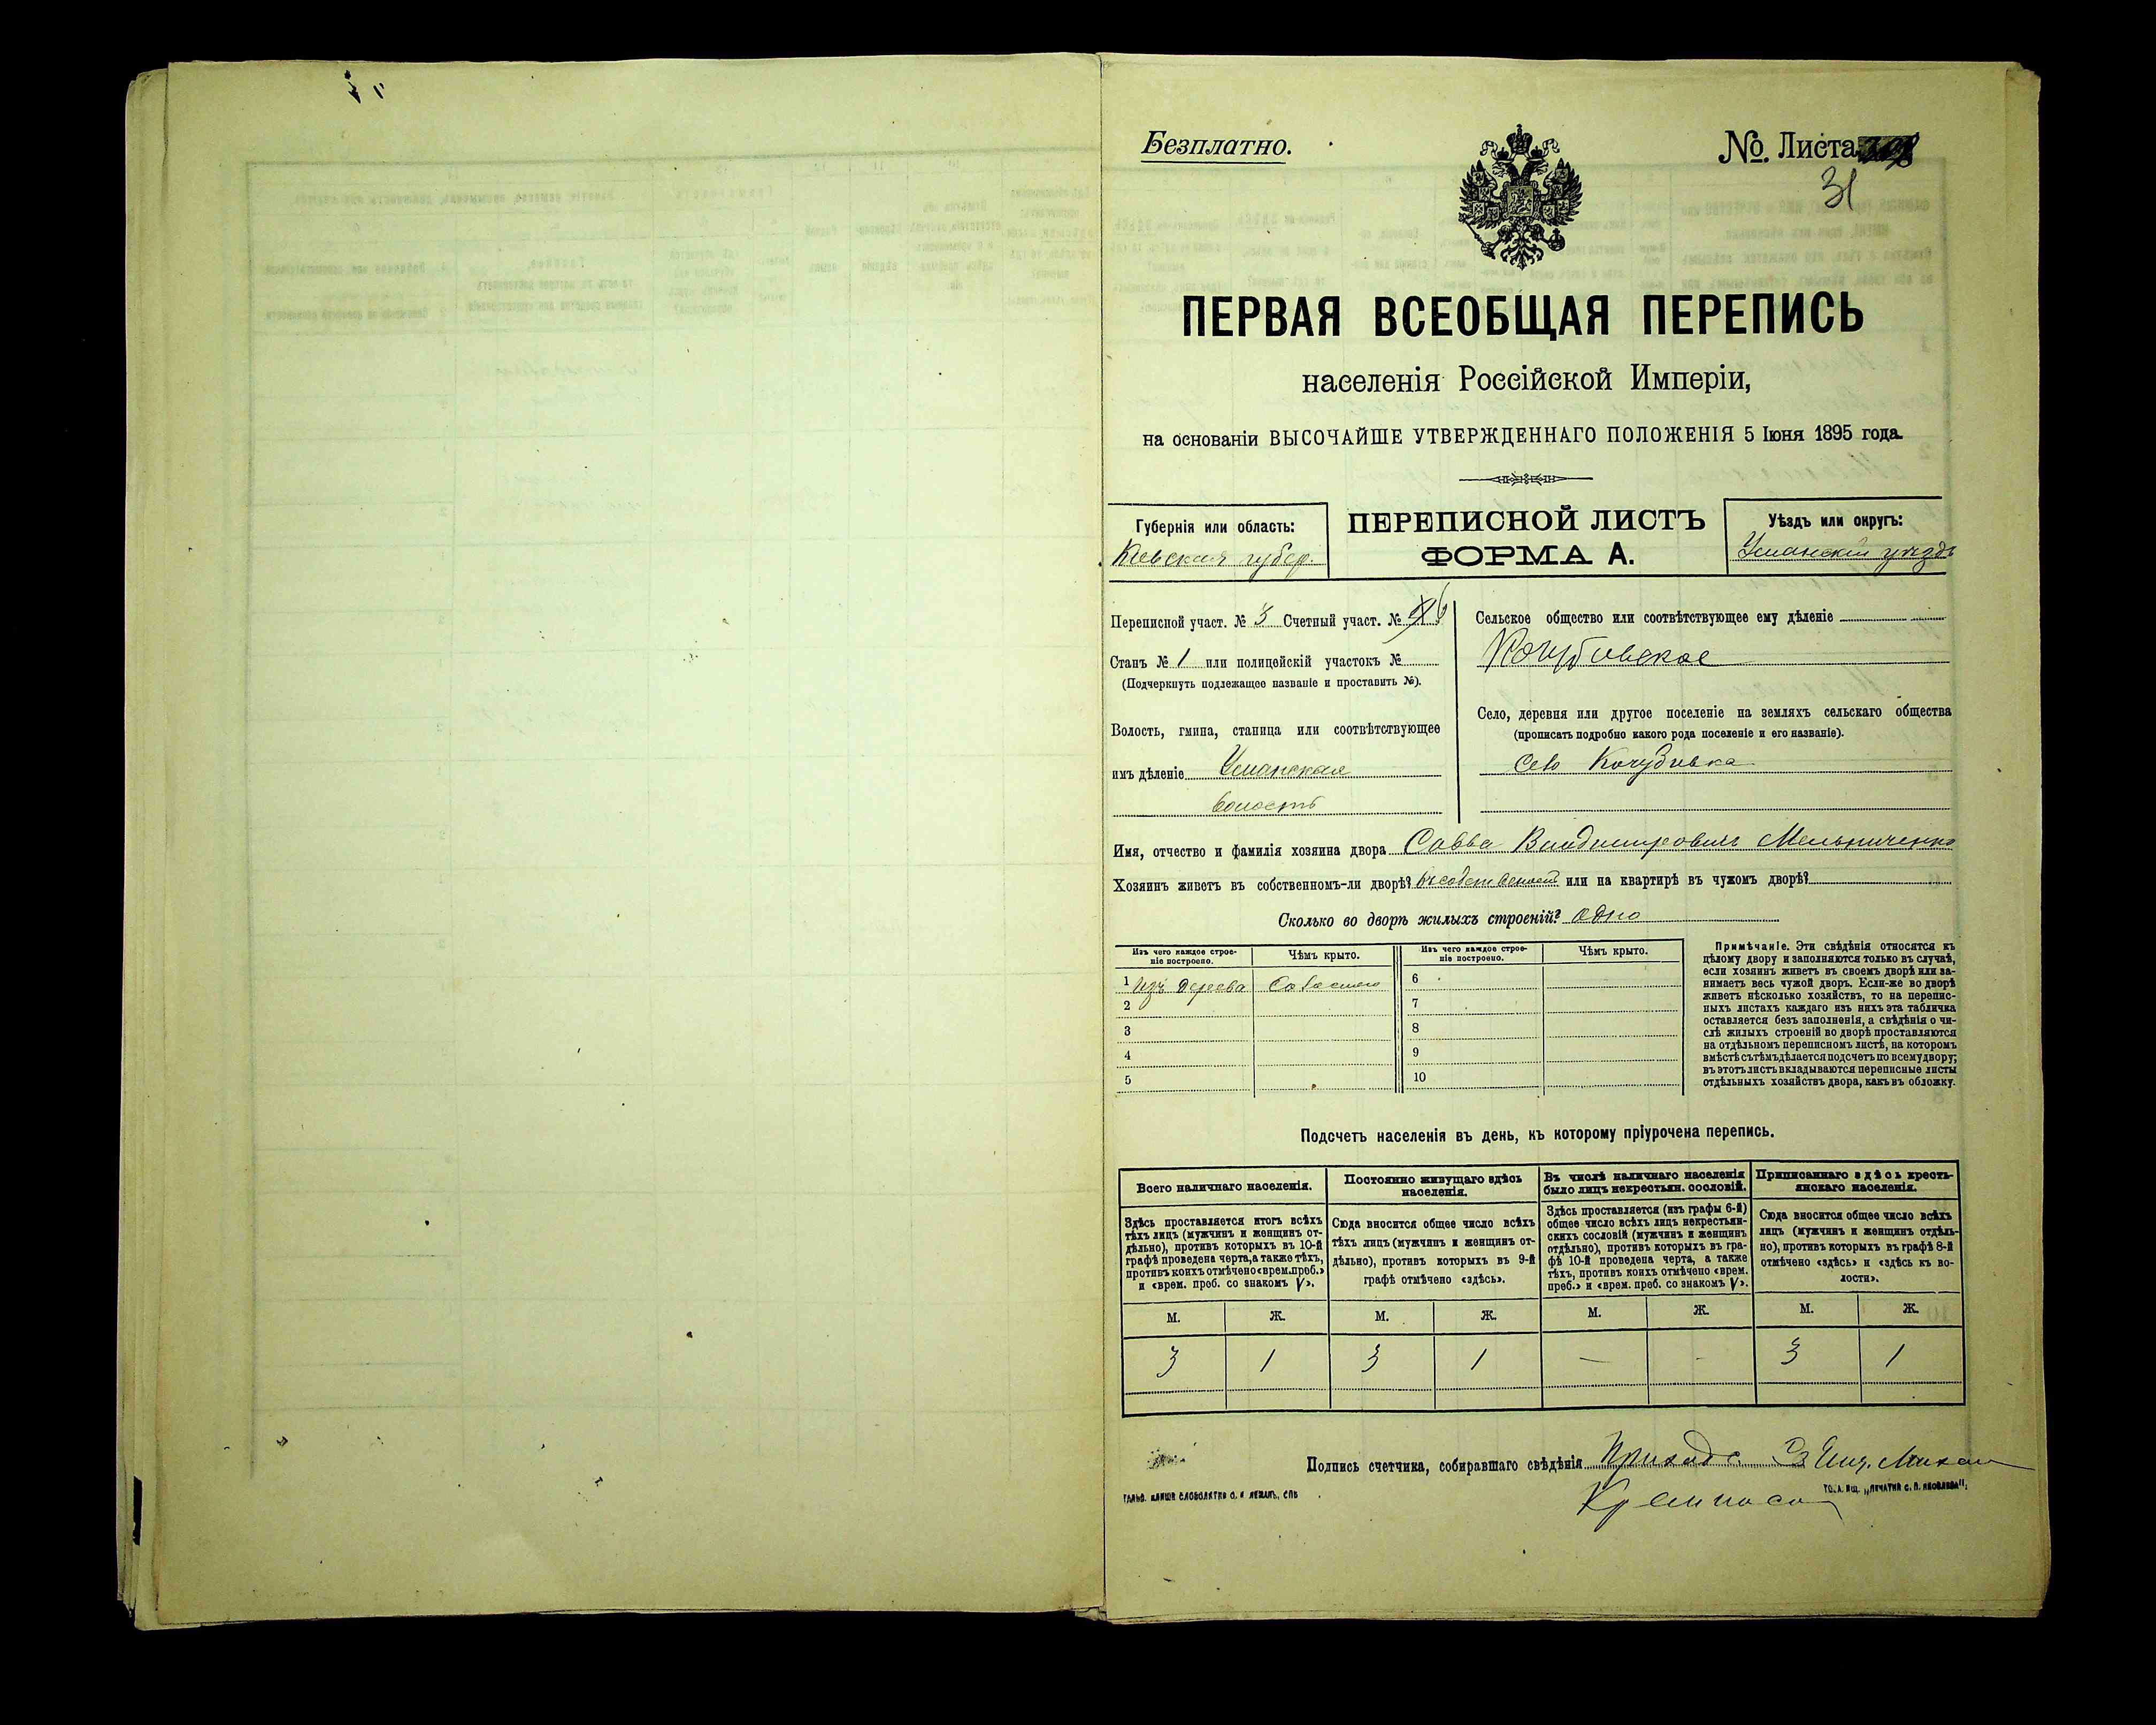 Безплатно.
№. Листа
31
ПЕРВАЯ ВСЕОБЩАЯ ПЕРЕПИСЬ
населенія Россійской Имперіи,
на основаніи ВЫСОЧАЙШЕ УТВЕРЖДЕННАГО ПОЛОЖЕНІЯ 5 Іюня 1895 года.
Губернія или область:
Кіевская губер.
ПЕРЕПИСНОЙ ЛИСТЪ
ФОРМА А.
Уѣздъ или округъ:
Уманскій уѣздъ
Переписной участ. № 3 Счетный участ. № 6
Станъ № 1 или полицейскій участокъ №
(Подчеркнуть подлежащее названіе и проставить №).
Волость, гмина, станица или соотвѣтствующее
имъ дѣленіе Уманская
волость
Сельское общество или соотвѣтствующее ему дѣленіе
Село, деревня или другое поселеніе на земляхъ сельскаго общества
(прописать подробно какого рода поселеніе и его названіе).
Село
Имя, отчество и фамилія хозяина двора Савва Владимировичъ Мельниченко
Хозяинъ живетъ въ собственномъ-ли дворѣ? или на квартирѣ въ чужомъ дворѣ?
Сколько во дворѣ жилыхъ строеній? одно
Изъ чего каждое строе-
ніе построено.
Чѣмъ крыто.
Изъ чего каждое строе-
ніе построено.
Чѣмъ крыто.
1 Изъ дерева Соломою
2
3
4
5
6
7
8
9
10
Примѣчаніе. Эти свѣдѣнія относятся къ
цѣлому двору и заполняются только въ случаѣ,
если хозяинъ живетъ въ своемъ дворѣ или за-
нимаетъ весь чужой дворъ. Если-же во дворѣ
живетъ нѣсколько хозяйствъ, то на перепис-
ныхъ листахъ каждаго изъ нихъ эта табличка
оставляется безъ заполненія, а свѣдѣнія о чи-
слѣ жилыхъ строеній во дворѣ проставляются
на отдѣльномъ переписномъ листѣ, на которомъ
вмѣстѣ съ тѣмъ дѣлается подсчетъ по всему двору;
въ этотъ листъ вкладываются переписные листы
отдѣльныхъ хозяйствъ двора, какъ въ обложку.
Подсчетъ населенія въ день, къ которому пріурочена перепись.
Всего наличнаго населенія.
Здѣсь проставляется итогъ всѣхъ
тѣхъ лицъ (мужчинъ и женщинъ от-
дѣльно), противъ которыхъ въ 10-й
графѣ проведена черта, а также тѣхъ,
противъ коихъ отмѣчено «врем. преб.»
и «врем. преб. со знакомъ V».
Постоянно живущаго здѣсь
населенія.
Сюда вносится общее число всѣхъ
тѣхъ лицъ (мужчинъ и женщинъ от-
дѣльно), противъ которыхъ въ 9-й
графѣ отмѣчено «здѣсь».
Въ числѣ наличнаго населенія
было лицъ некрестьян. сословій.
Здѣсь проставляется (изъ графы 6-й)
общее число всѣхъ лицъ некрестьян-
скихъ сословій (мужчинъ и женщинъ
отдѣльно), противъ которыхъ въ гра-
фѣ 10-й проведена черта, а также
тѣхъ, противъ коихъ отмѣчено «врем.
преб.» и «врем. преб. со знакомъ V».
Приписаннаго здѣсь кресть-
янскаго населенія.
Сюда вносится общее число всѣхъ
лицъ (мужчинъ и женщинъ отдѣль-
но), противъ которыхъ въ графѣ 8-й
отмѣчено «здѣсь» и «здѣсь къ во-
лости».
М. Ж. М. Ж. М. Ж. М. Ж.
3 1 3 1 — - 3 1
Подпись счетчика, собиравшаго свѣдѣнія